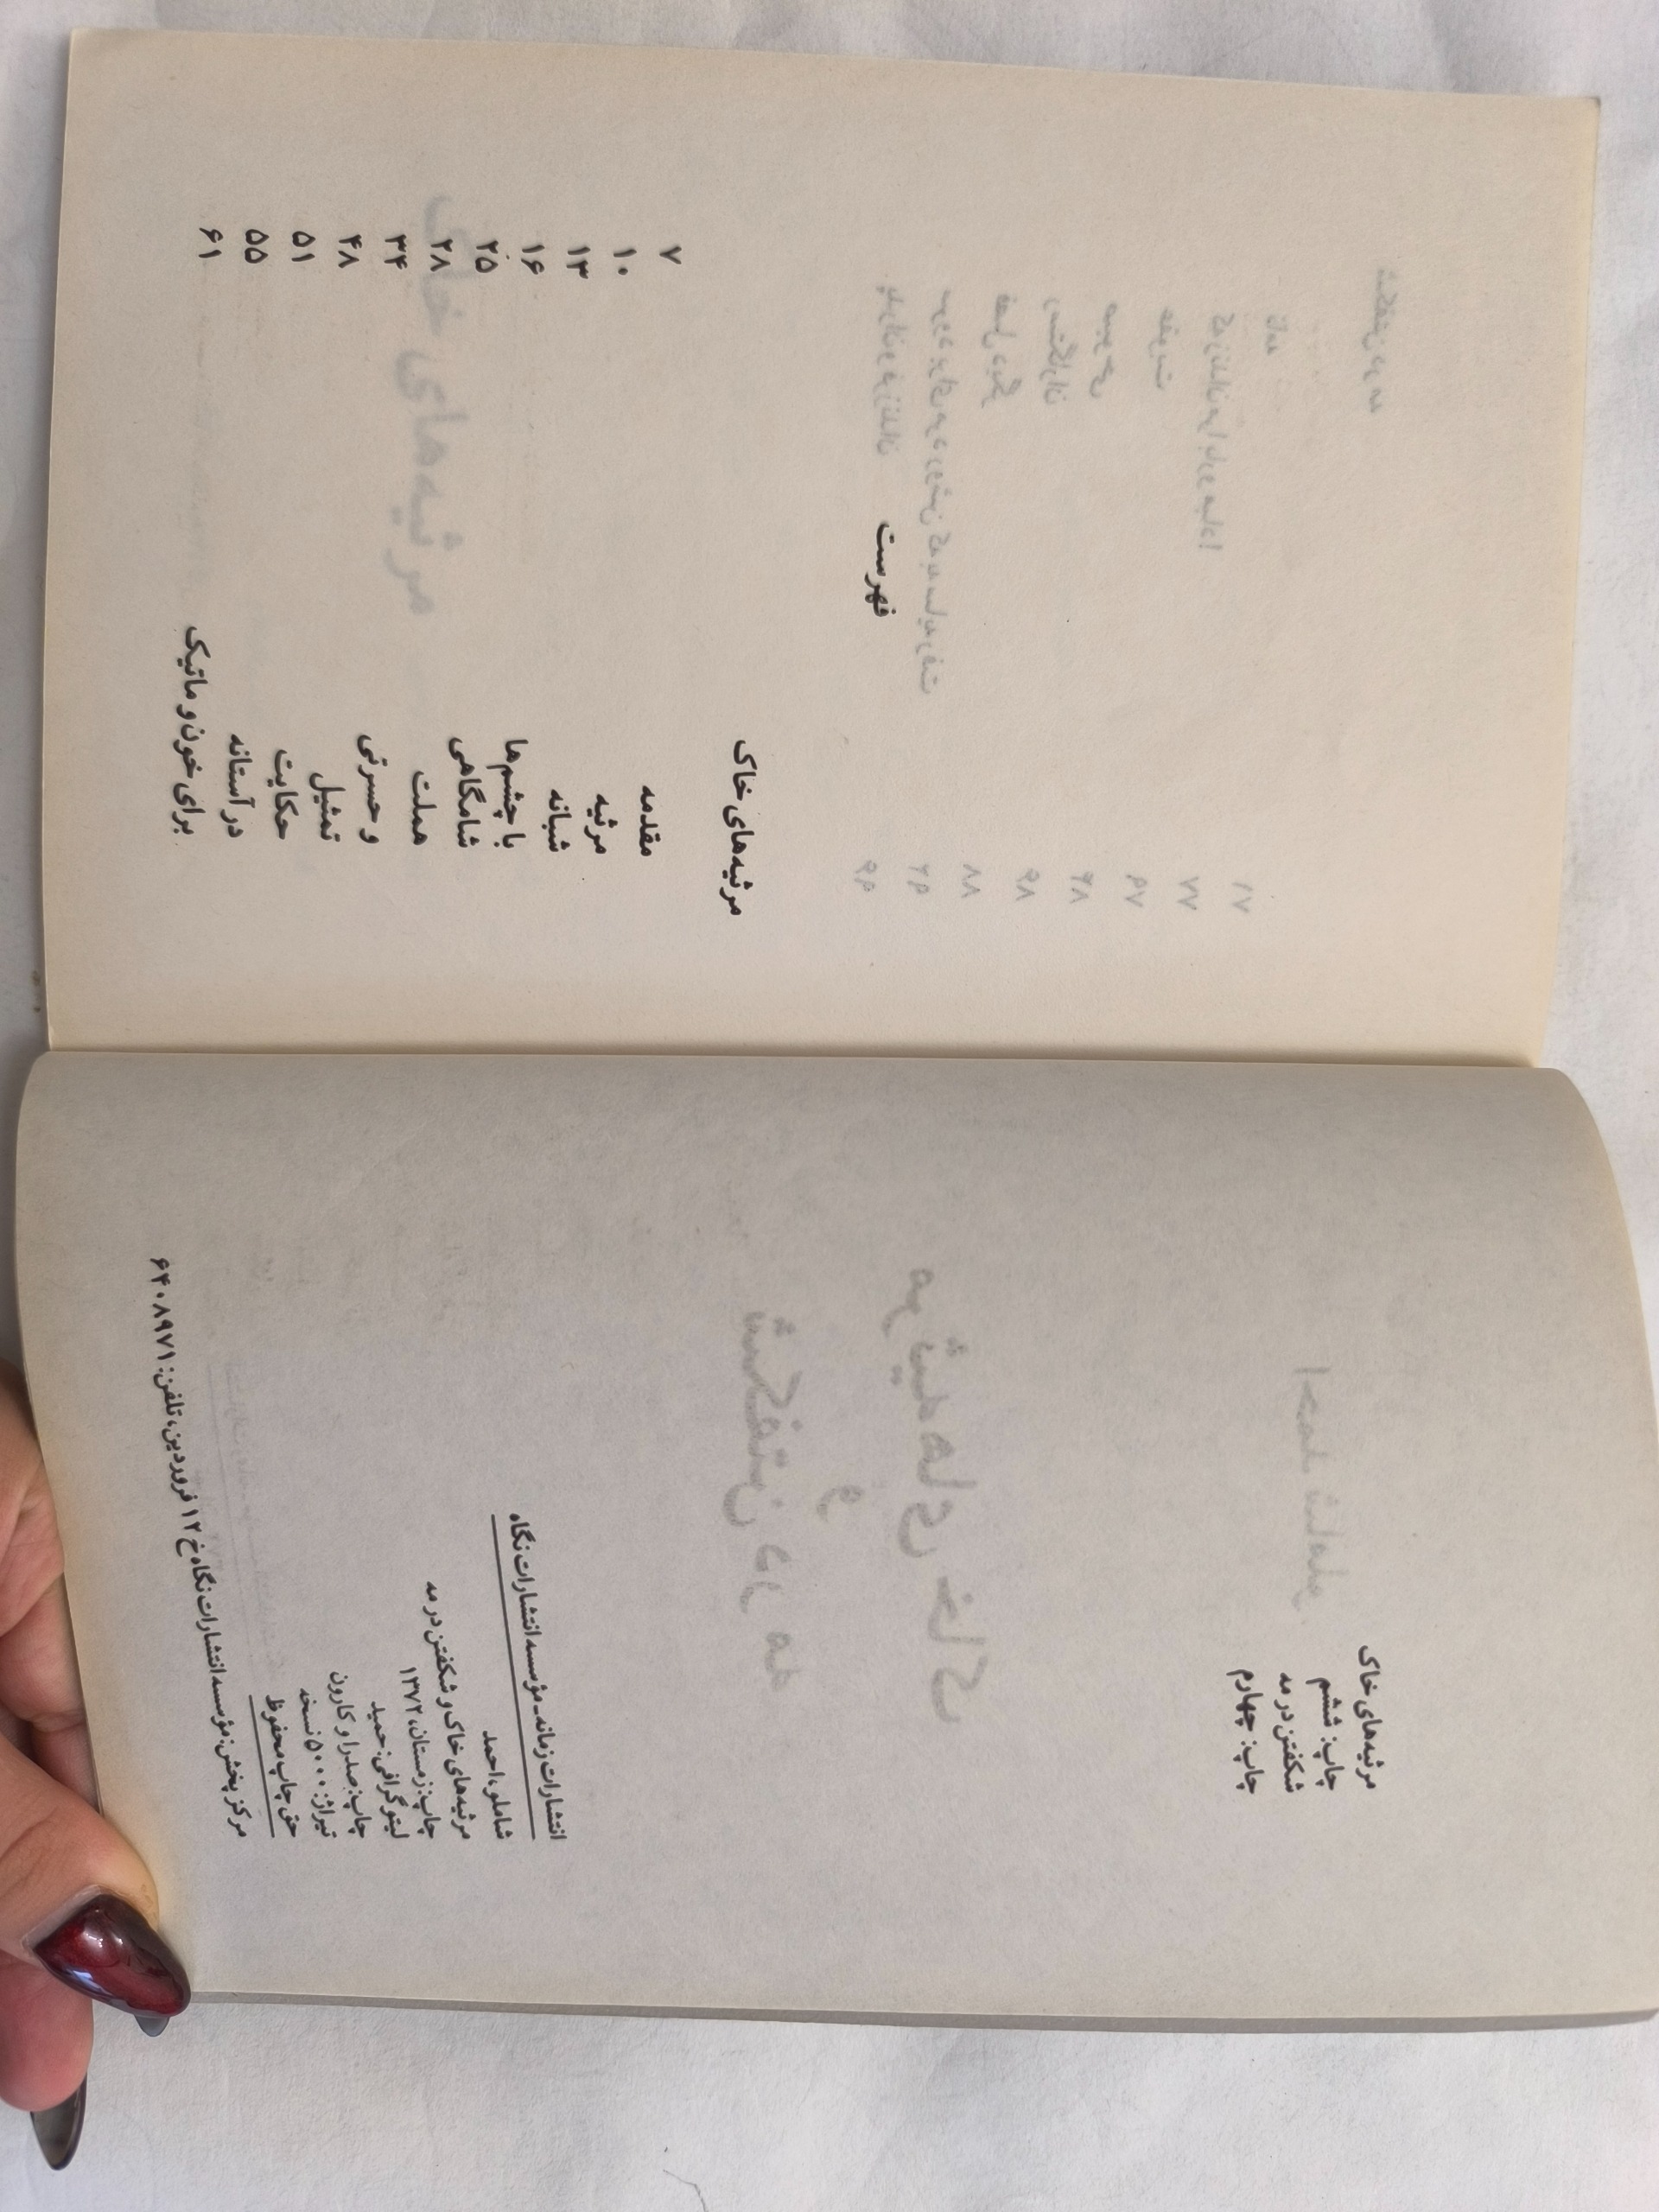 مرثیه‌های خاک
چاپ: ششم
شکفتن در مه
چاپ: چهارم
انتشارات زمانه-مؤسسه انتشارات نگاه
شاملو، احمد
مرثیه‌های خاک و شکفتن در مه
چاپ: زمستان، ۱۳۷۲
لیتوگرافی: حمید
چاپ: صدرا و کارون
تیراژ: ۵۰۰۰ نسخه
حق چاپ محفوظ
مرکز پخش: مؤسسه انتشارات نگاه خ ۱۲ فروردین، تلفن: ۶۴۰۸۹۷۱
فهرست
مرثیه‌های خاک
مقدمه ۷
مرثیه ۱۰
شبانه ۱۳
با چشم‌ها ۱۶
شامگاهی ۲۵
هملت ۲۸
و حسرتی ۳۴
تمثیل ۴۸
حکایت ۵۱
در آستانه ۵۵
برای خون و ماتیک ۶۱